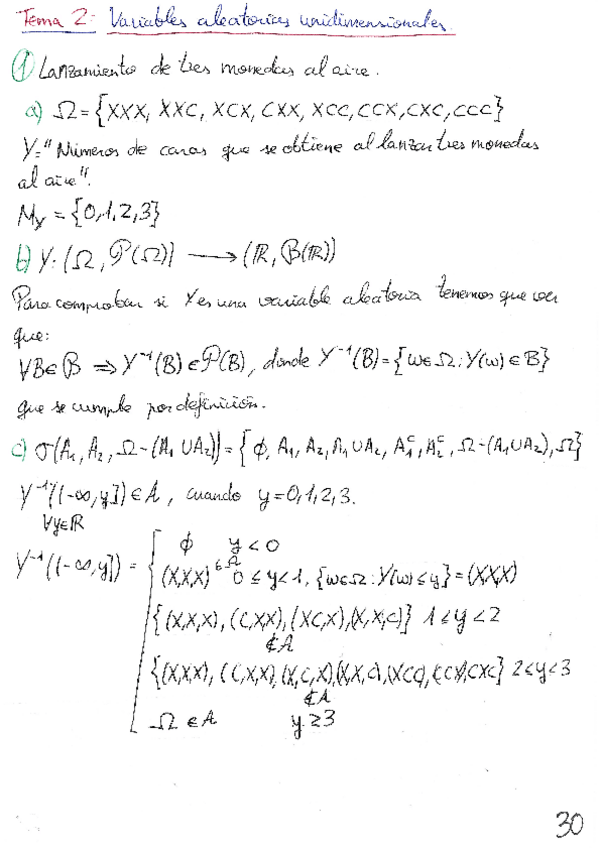 Tema 2: Variables aleatorias unidimensionales.
① Lanzamiento de tres monedas al aire.
a) Ω={XXX, XXC, XCX, CXX, XCC, CCX, CXC, CCC}
Y="Números de caras que se obtiene al lanzar tres monedas
al aire".
M_Y = {0,1,2,3}
b) Y: (Ω, P(Ω)) → (ℝ, B(ℝ))
Para comprobar si Y es una variable aleatoria tenemos que ver
que:
∀B∈B ⇒ Y⁻¹(B)∈P(B), donde Y⁻¹(B)={w∈Ω: Y(w)∈B}
que se cumple por definición.
c) σ(A₁, A₂, Ω-(A₁∪A₂))={∅, A₁, A₂, A₁∪A₂, A₁ᶜ, A₂ᶜ, Ω-(A₁∪A₂), Ω}
Y⁻¹((-∞,y])∈A, cuando y=0,1,2,3.
∀y∈ℝ
Y⁻¹((-∞,y]) = ∅ y<0
(X,X,X) ∈Ω 0≤y<1, {w∈Ω: Y(w)≤y}=(X,X,X)
{(X,X,X), (C,X,X), (X,C,X), (X,X,C)} 1≤y<2
∉A
{(X,X,X), (C,X,X), (X,C,X), (X,X,C), (XCC), (CCX), CXC} 2≤y<3
∉A
Ω ∈A y≥3
30